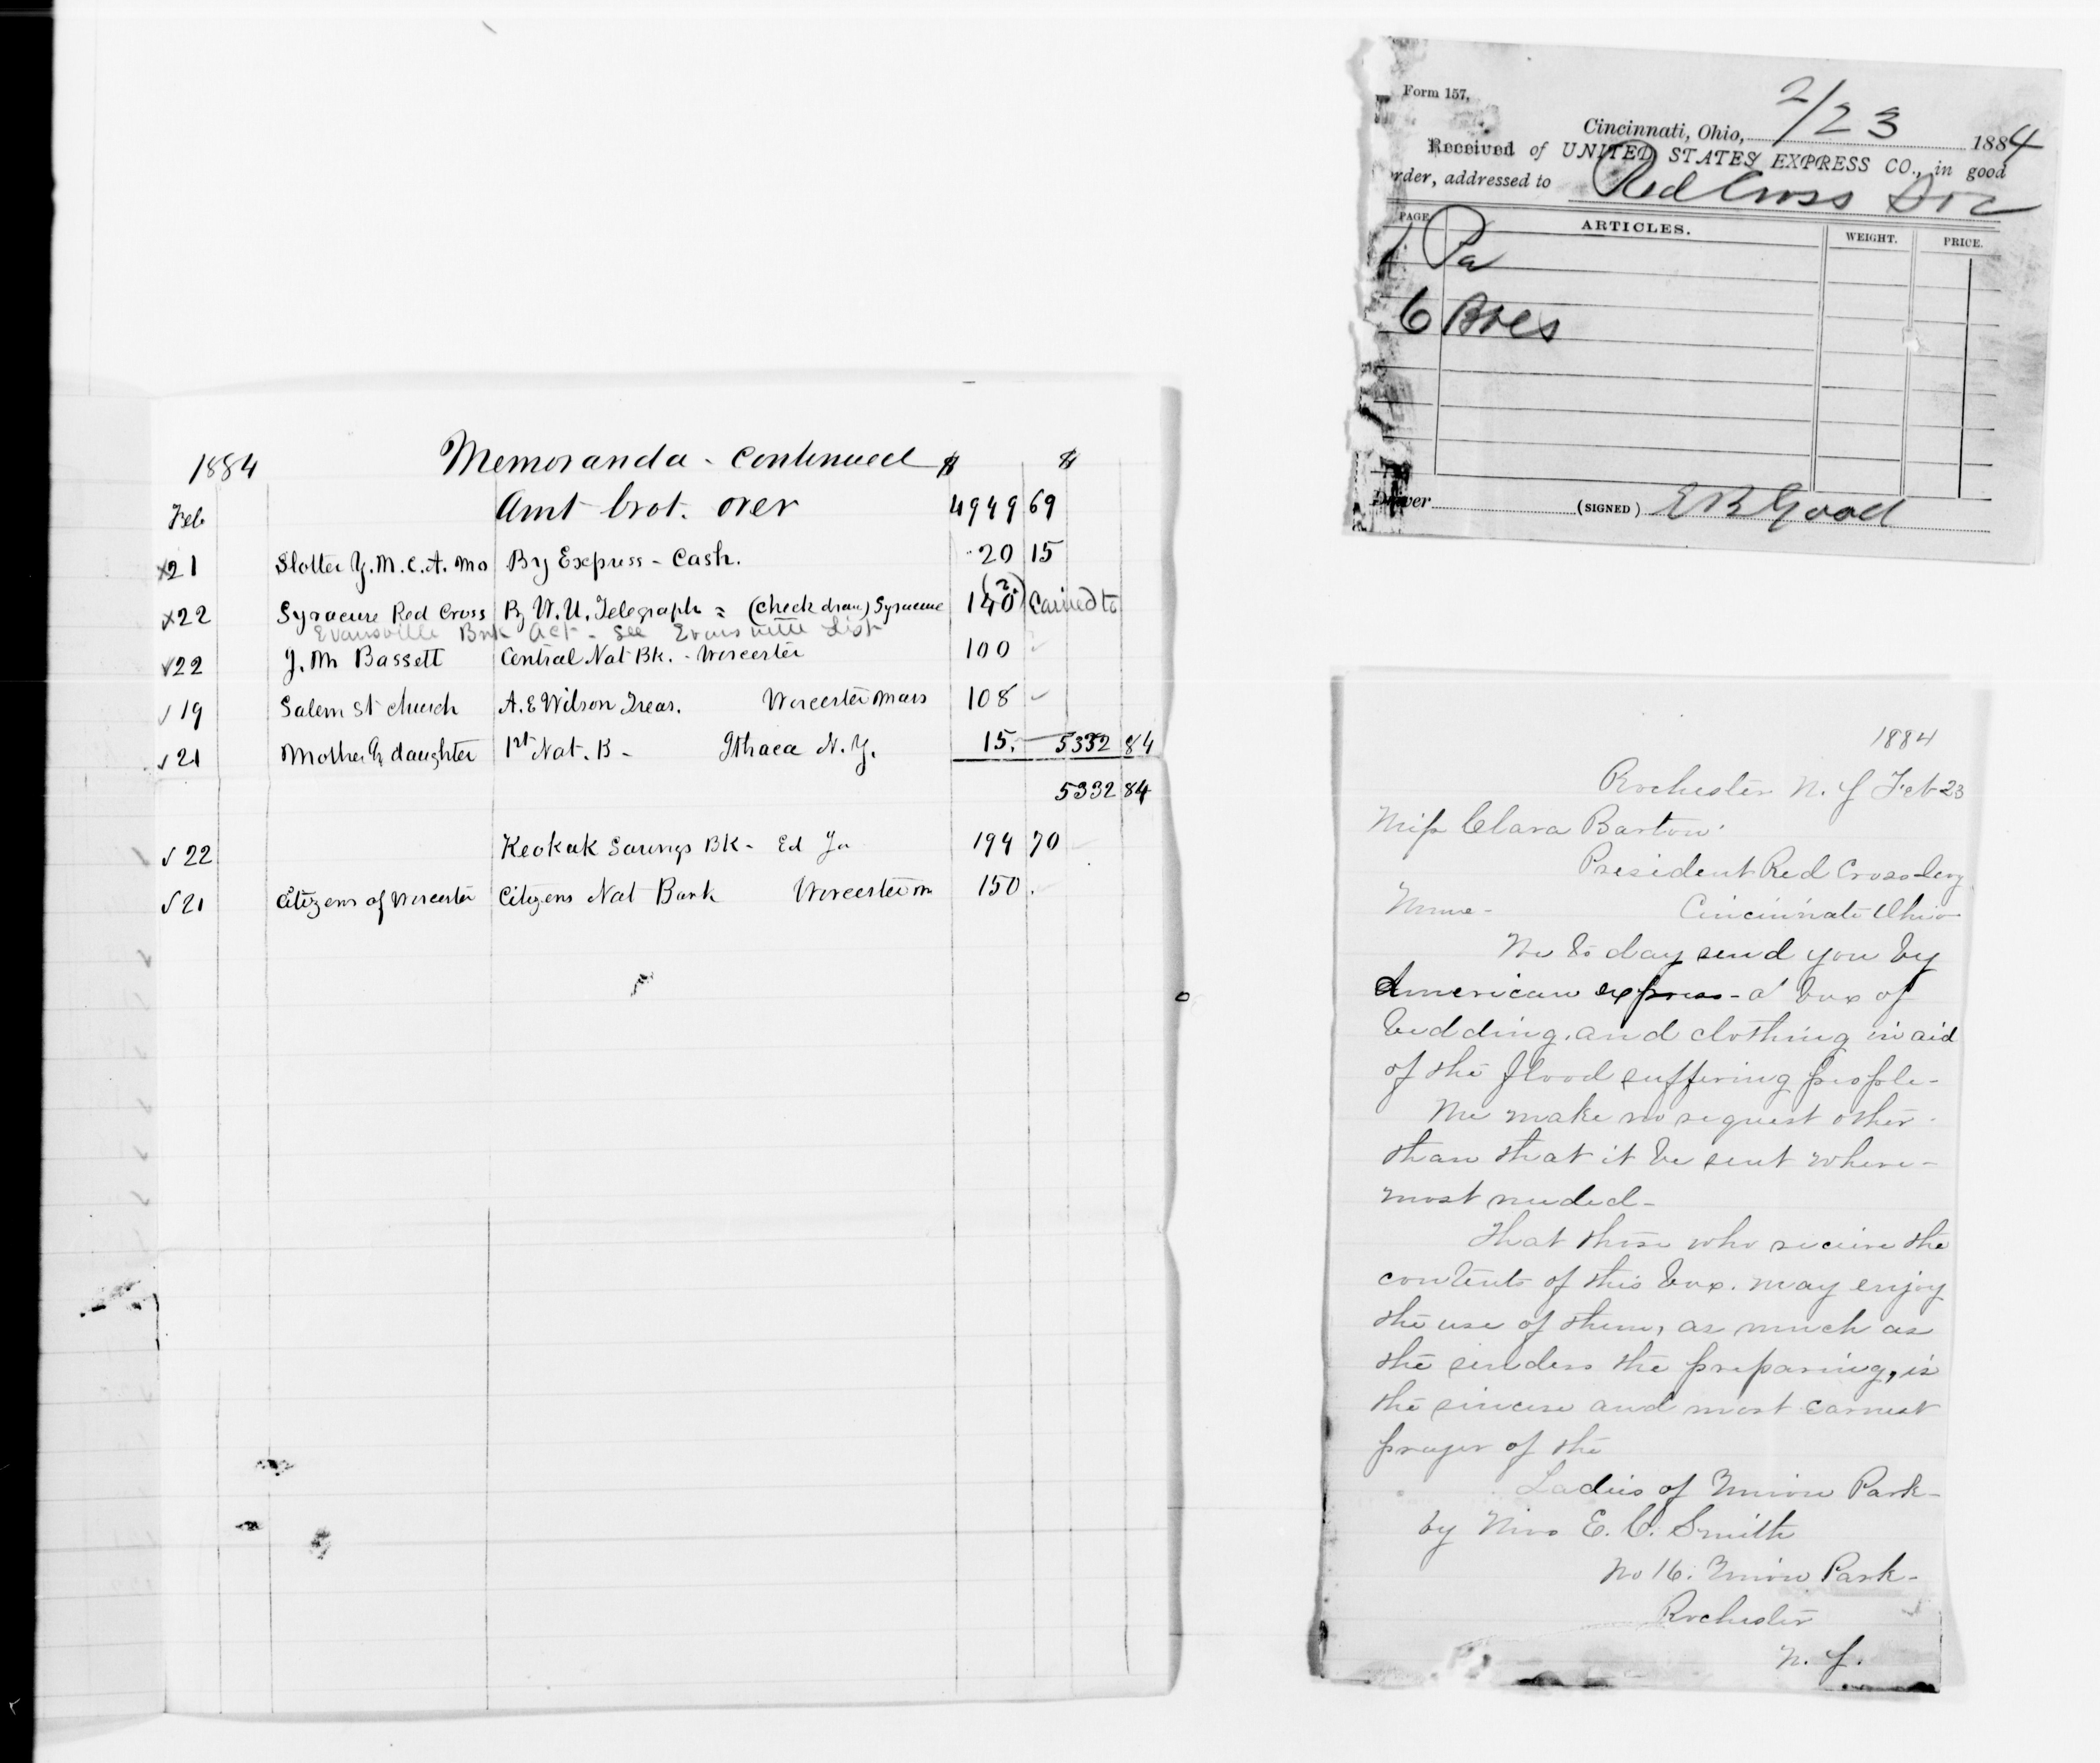 1884 Memoranda - continued $ $
Feb Amt brot. over 4949 69
x21 Slotter Y.M.C.A. Mo By Express - Cash. 20 15
x22 Syracuse Red Cross By W.U. Telegraph = (check draw) Syracuse 140 (2) Carried to
Evansville Bnk Act - See Evansville List
√22 J. M Bassett Central Nat Bk. - Worcester 100 ✓
√19 Salem St Church A. E Wilson Treas. Worcester Mass 108 ✓
√21 Mother & daughter 1st Nat. B - Ithaca N. Y. 15. 5332 84
5332 84
√22 Keokuk Savings BK - Ed Ja 194 70
√21 Citizens of Worcester Citizens Nat Bank Worcester M 150.
Form 157,
Cincinnati, Ohio, 2/23 1884
Received of UNITED STATES EXPRESS CO., in good
rder, addressed to Red Cross Soc
PAGE ARTICLES. WEIGHT. PRICE.
1 Pa
6 Bxes
Driver (SIGNED) E B Good
1884
Rochester N. Y Feb 23
Miss Clara Barton.
President Red Cross Socy
Cincinnati Ohio
We to day send you by
American express - a box of
bedding, and clothing in aid
of the flood suffering people -
We make no request other -
than that it be sent where -
most needed -
That those who recieve the
contents of this box. may enjoy
the use of them, as much as
the senders the preparing, is
the sincere and most earnest
prayer of the
Ladies of Union Park -
by Mrs E. C. Smith
No 16. Union Park -
Rochester
N. Y.